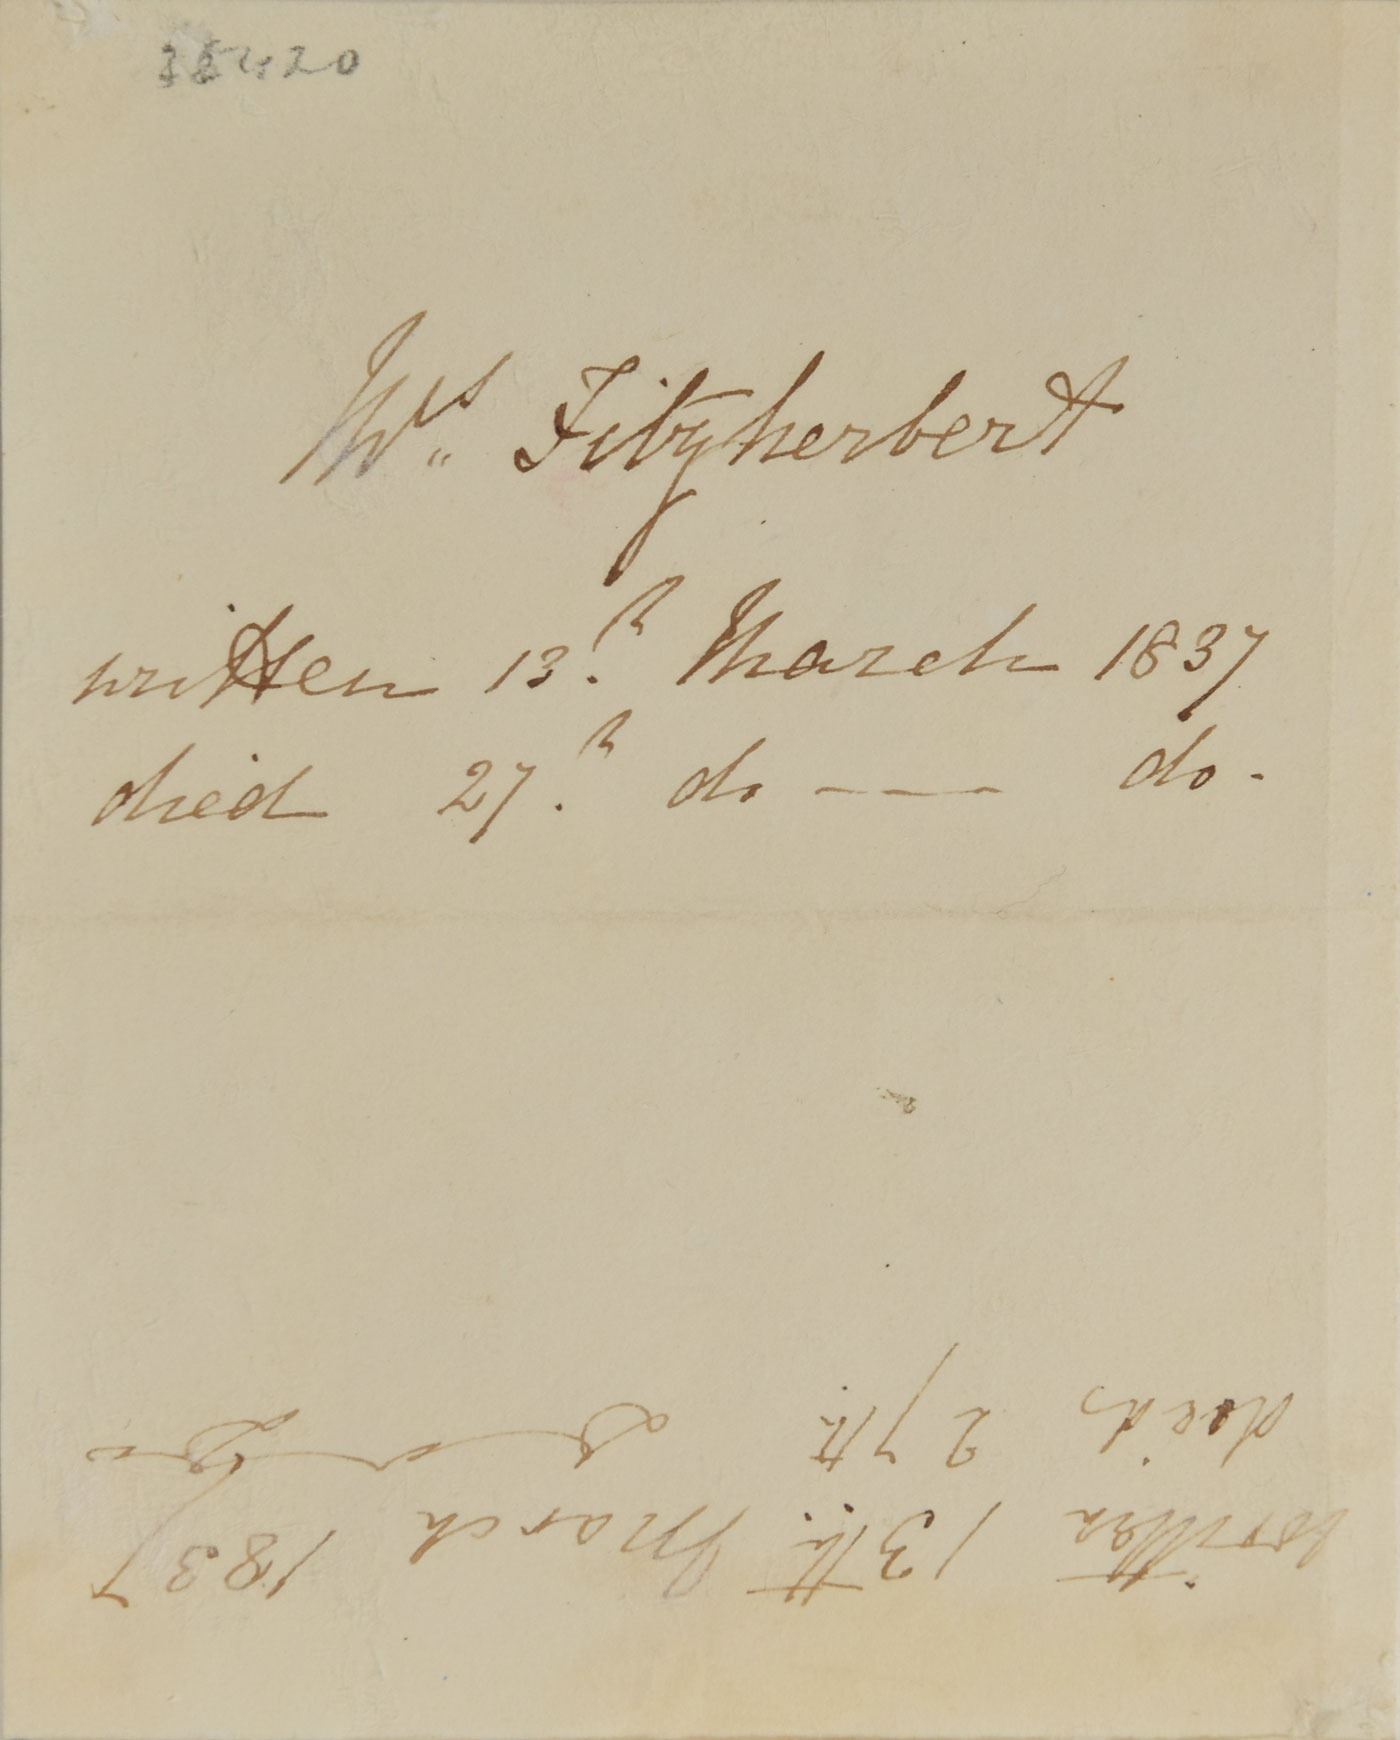 35420
Mrs Fitzherbert
written 13th March 1837
died 27th do --- do.
written 13th. March 1837
died 27th do do